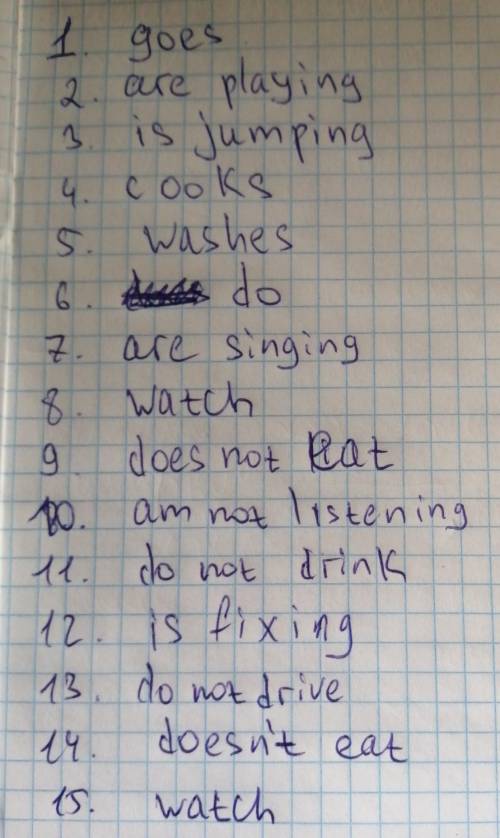 1. goes
2. are playing
3. is jumping
4. cooks
5. washes
6. do
7. are singing
8. watch
9. does not eat
10. am not listening
11. do not drink
12. is fixing
13. do not drive
14. doesn't eat
15. watch